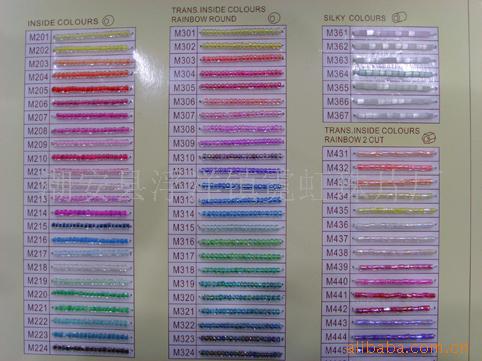 INSIDE COLOURS
M201
M202
M203
M204
M205
M206
M207
M208
M209
M210
M211
M212
M213
M214
M215
M216
M217
M218
M219
M220
M221
M222
M223
M224
TRANS.INSIDE COLOURS
RAINBOW ROUND
M301
M302
M303
M304
M305
M306
M307
M308
M309
M310
M311
M312
M313
M314
M315
M316
M317
M318
M319
M320
M321
M322
M323
M324
SILKY COLOURS
M361
M362
M363
M364
M365
M366
M367
TRANS.INSIDE COLOURS
RAINBOW 2 CUT
M431
M432
M433
M434
M435
M436
M437
M438
M439
M440
M441
M442
M443
M444